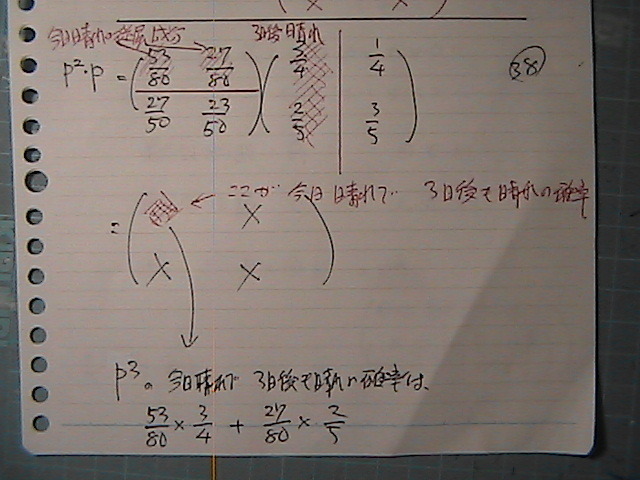 ( × × )
今日晴れの 3日後晴れ
P²・P = ( 53/80 27/80 27/50 23/50 ) ( 3/4 1/4 2/5 3/5 ) 38
= ( × × × ) ← ここが 今日晴れで 3日後も晴れの確率
P³の 今日晴れで 3日後も晴れの確率は、
53/80 × 3/4 + 27/80 × 2/5